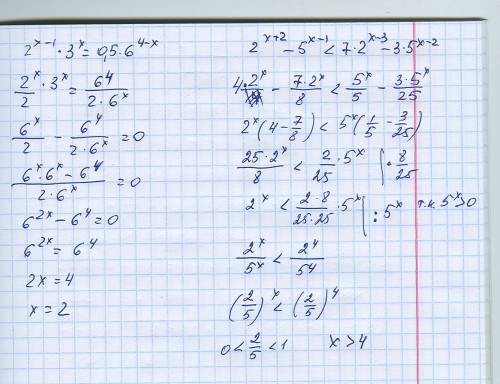 2^(x-1) · 3^x = 0,5 · 6^(4-x)
2^x/2 · 3^x = 64/(2 · 6^x)
6^x/2 - 6^4/(2 · 6^x) = 0
(6^x · 6^x - 6^4)/(2 · 6^x) = 0
6^(2x) - 6^4 = 0
6^(2x) = 6^4
2x = 4
x = 2
2^(x+2) - 5^(x-1) < 7 · 2^(x-3) - 3 · 5^(x-2)
4 · 2^x - 7 · 2^x/8 < 5^x/5 - 3 · 5^x/25
2^x (4 - 7/8) < 5^x (1/5 - 3/25)
25 · 2^x/8 < 2/25 · 5^x | · 8/25
2^x < 2 · 8/(25 · 25) · 5^x | : 5^x т.к 5^x > 0
2^x/5^x < 2^4/54
(2/5)^x < (2/5)^4
0 < 2/5 < 1 x > 4